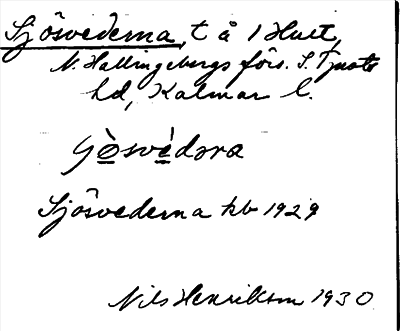 Sjösvederna, t å 1 Hult,
N. Hallingebergs förs. S. Tjusts
hd, Kalmar l.
Sjösvederna hb 1929
Nils Henrikson 1930